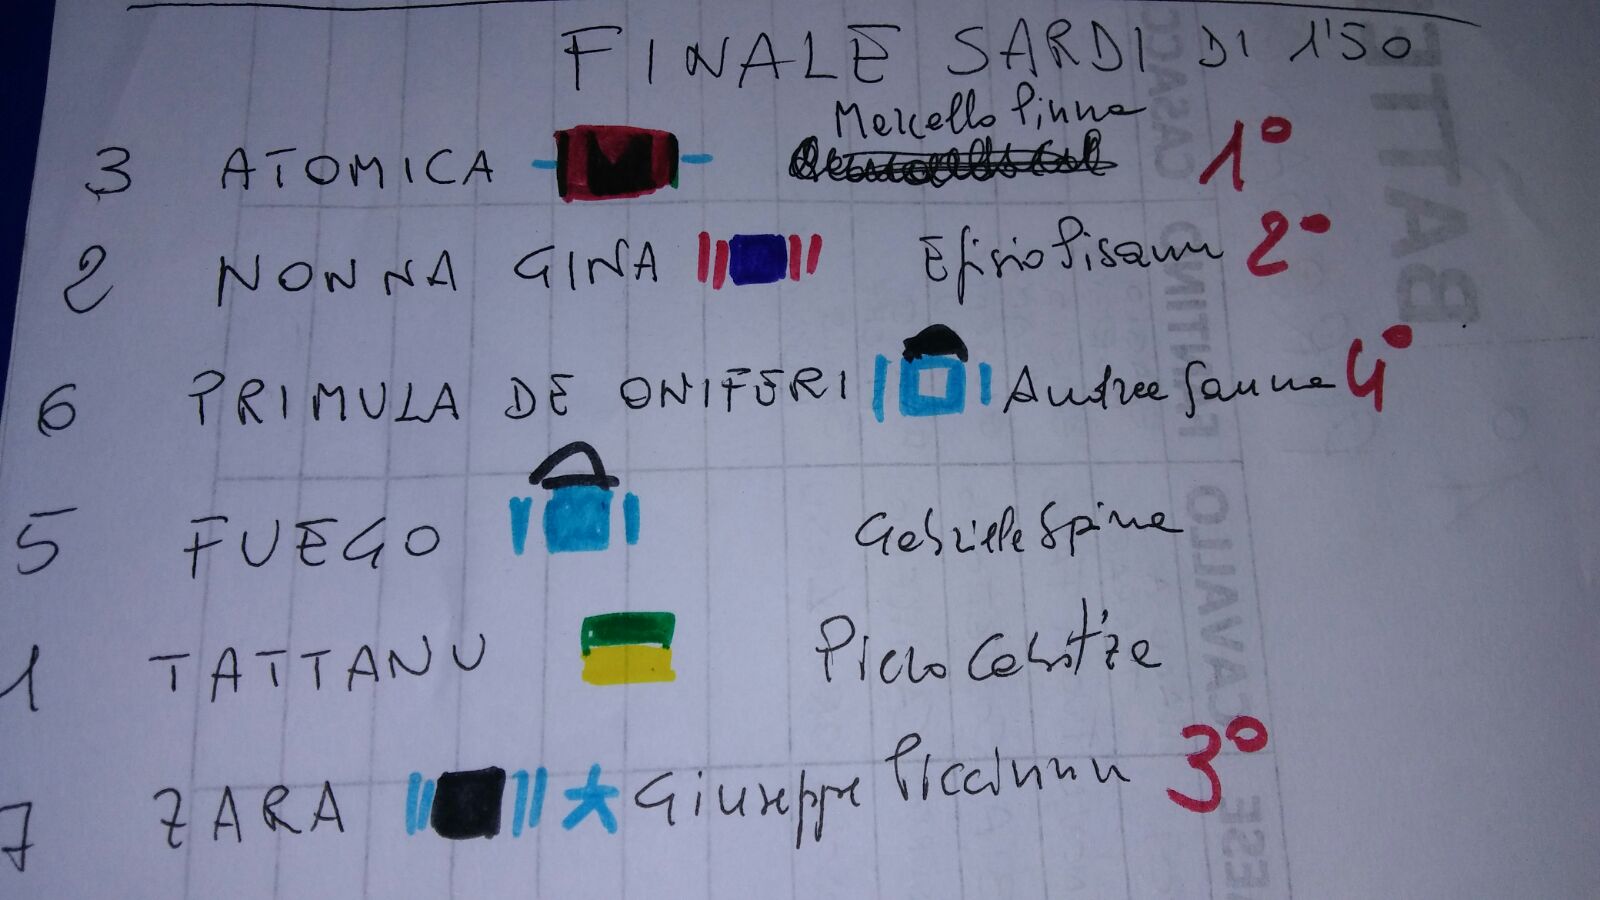 FINALE SARDI DI 1'50
Marcello Pinna
3 ATOMICA M 1°
2 NONNA GINA Efisio Pisanu 2°
6 PRIMULA DE ONIFERI Andrea Sanna 4°
5 FUEGO Gabriele Spina
1 TATTANU Piero Cabitza
7 ZARA Giuseppe Piccinnu 3°
BATT
CASACC
FANTINO
CAVALLO
ESE